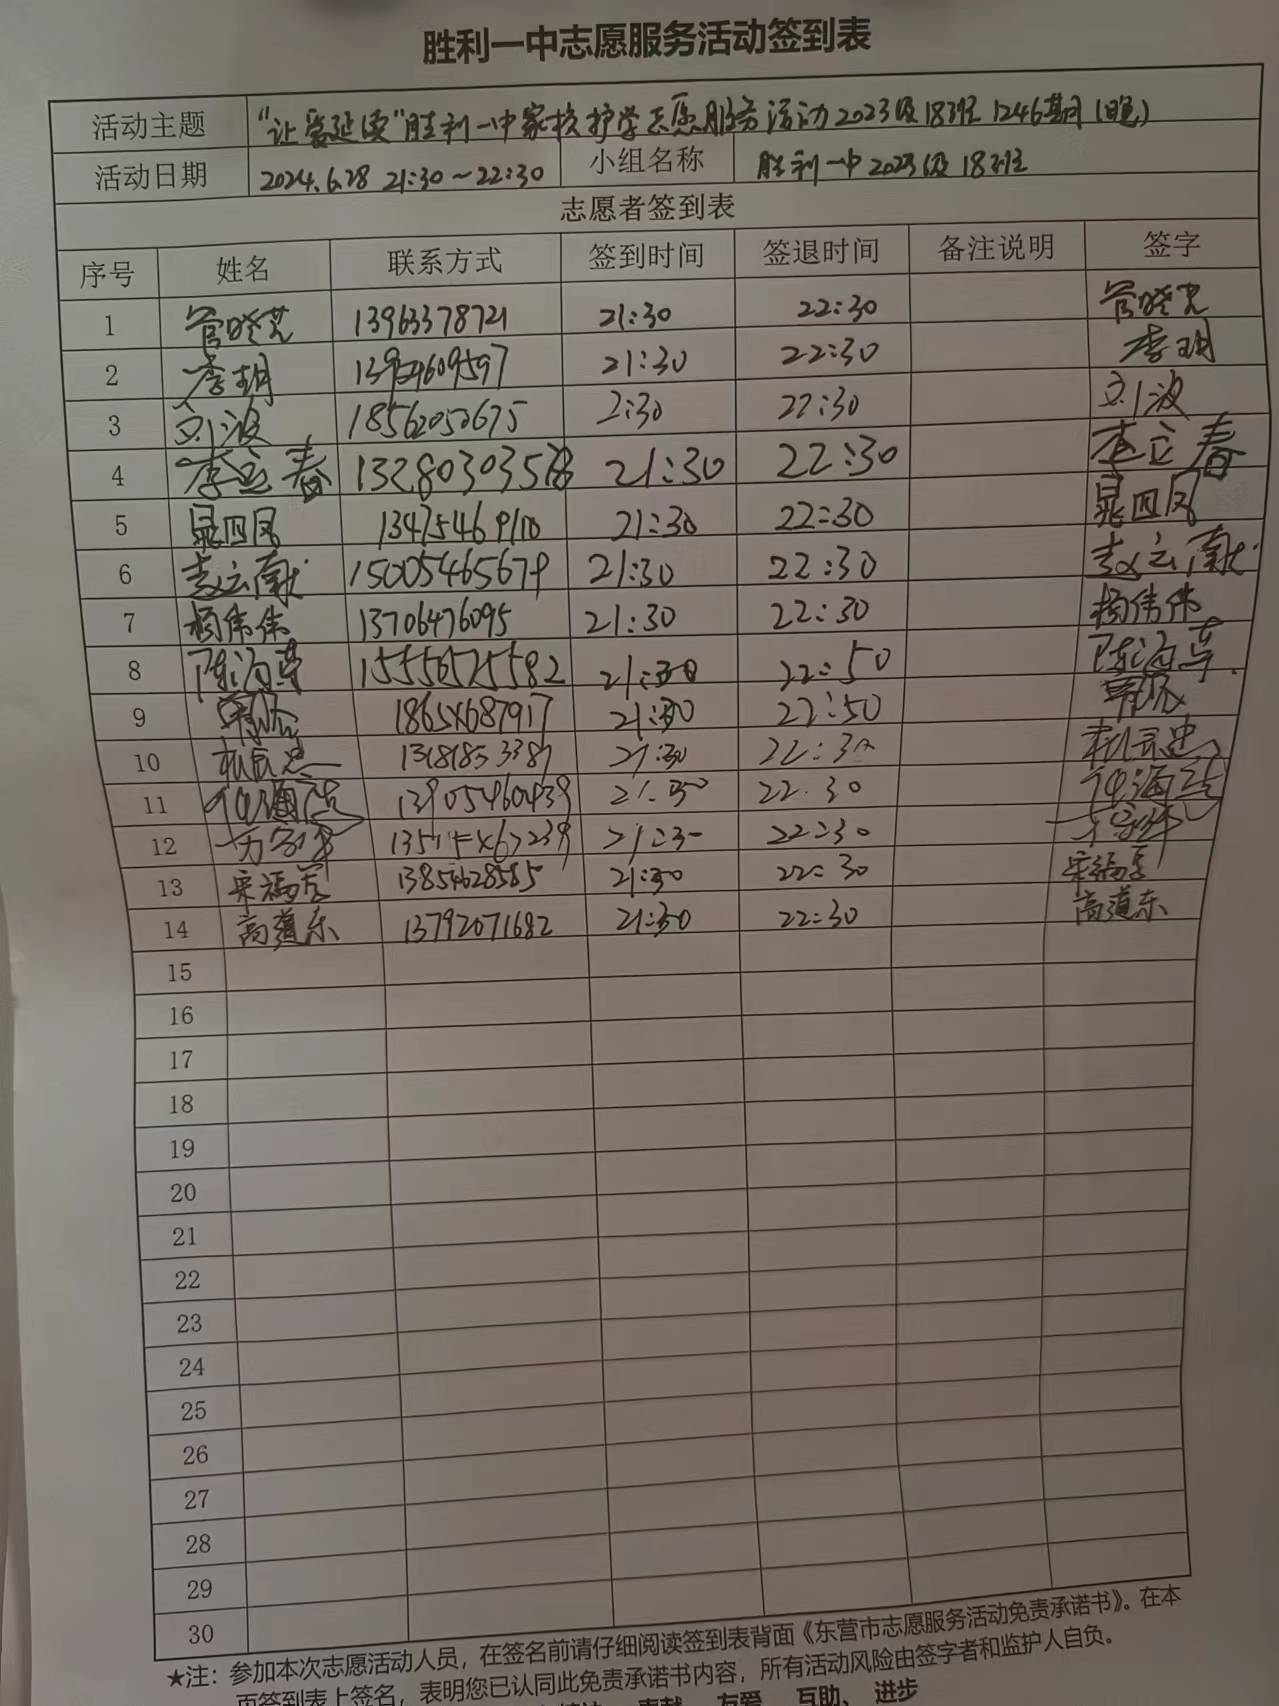 胜利一中志愿服务活动签到表
活动主题 “让爱延续”胜利一中家校护学志愿服务活动2023级18班1246期(晚)
活动日期 2024.6.28 21:30～22:30 小组名称 胜利一中2023级18班
志愿者签到表
序号 姓名 联系方式 签到时间 签退时间 备注说明 签字
1 管晓芸 13963378721 21:30 22:30 管晓芸
2 李玥 21:30 22:30 李玥
3 刘波 18562050675 2:30 22:30 刘波
4 李立春 21:30 22:30 李立春
5 晁四凤 13475469110 21:30 22:30 晁四凤
6 赵云献 15005465679 21:30 22:30 赵云献
7 杨伟伟 13706476095 21:30 22:30 杨伟伟
8 陈海英 15556575582 21:30 22:50 陈海英
9 21:30 22:50
10 21:30 22:30
11 21:30 22:30
12 21:30 22:30
13 宋福军 13854628585 21:30 22:30 宋福军
14 高道东 13792071682 21:30 22:30 高道东
15
16
17
18
19
20
21
22
23
24
25
26
27
28
29
30
★注：参加本次志愿活动人员，在签名前请仔细阅读签到表背面《东营市志愿服务活动免责承诺书》。在本
页签到表上签名，表明您已认同此免责承诺书内容，所有活动风险由签字者和监护人自负。
奉献 友爱 互助、 进步